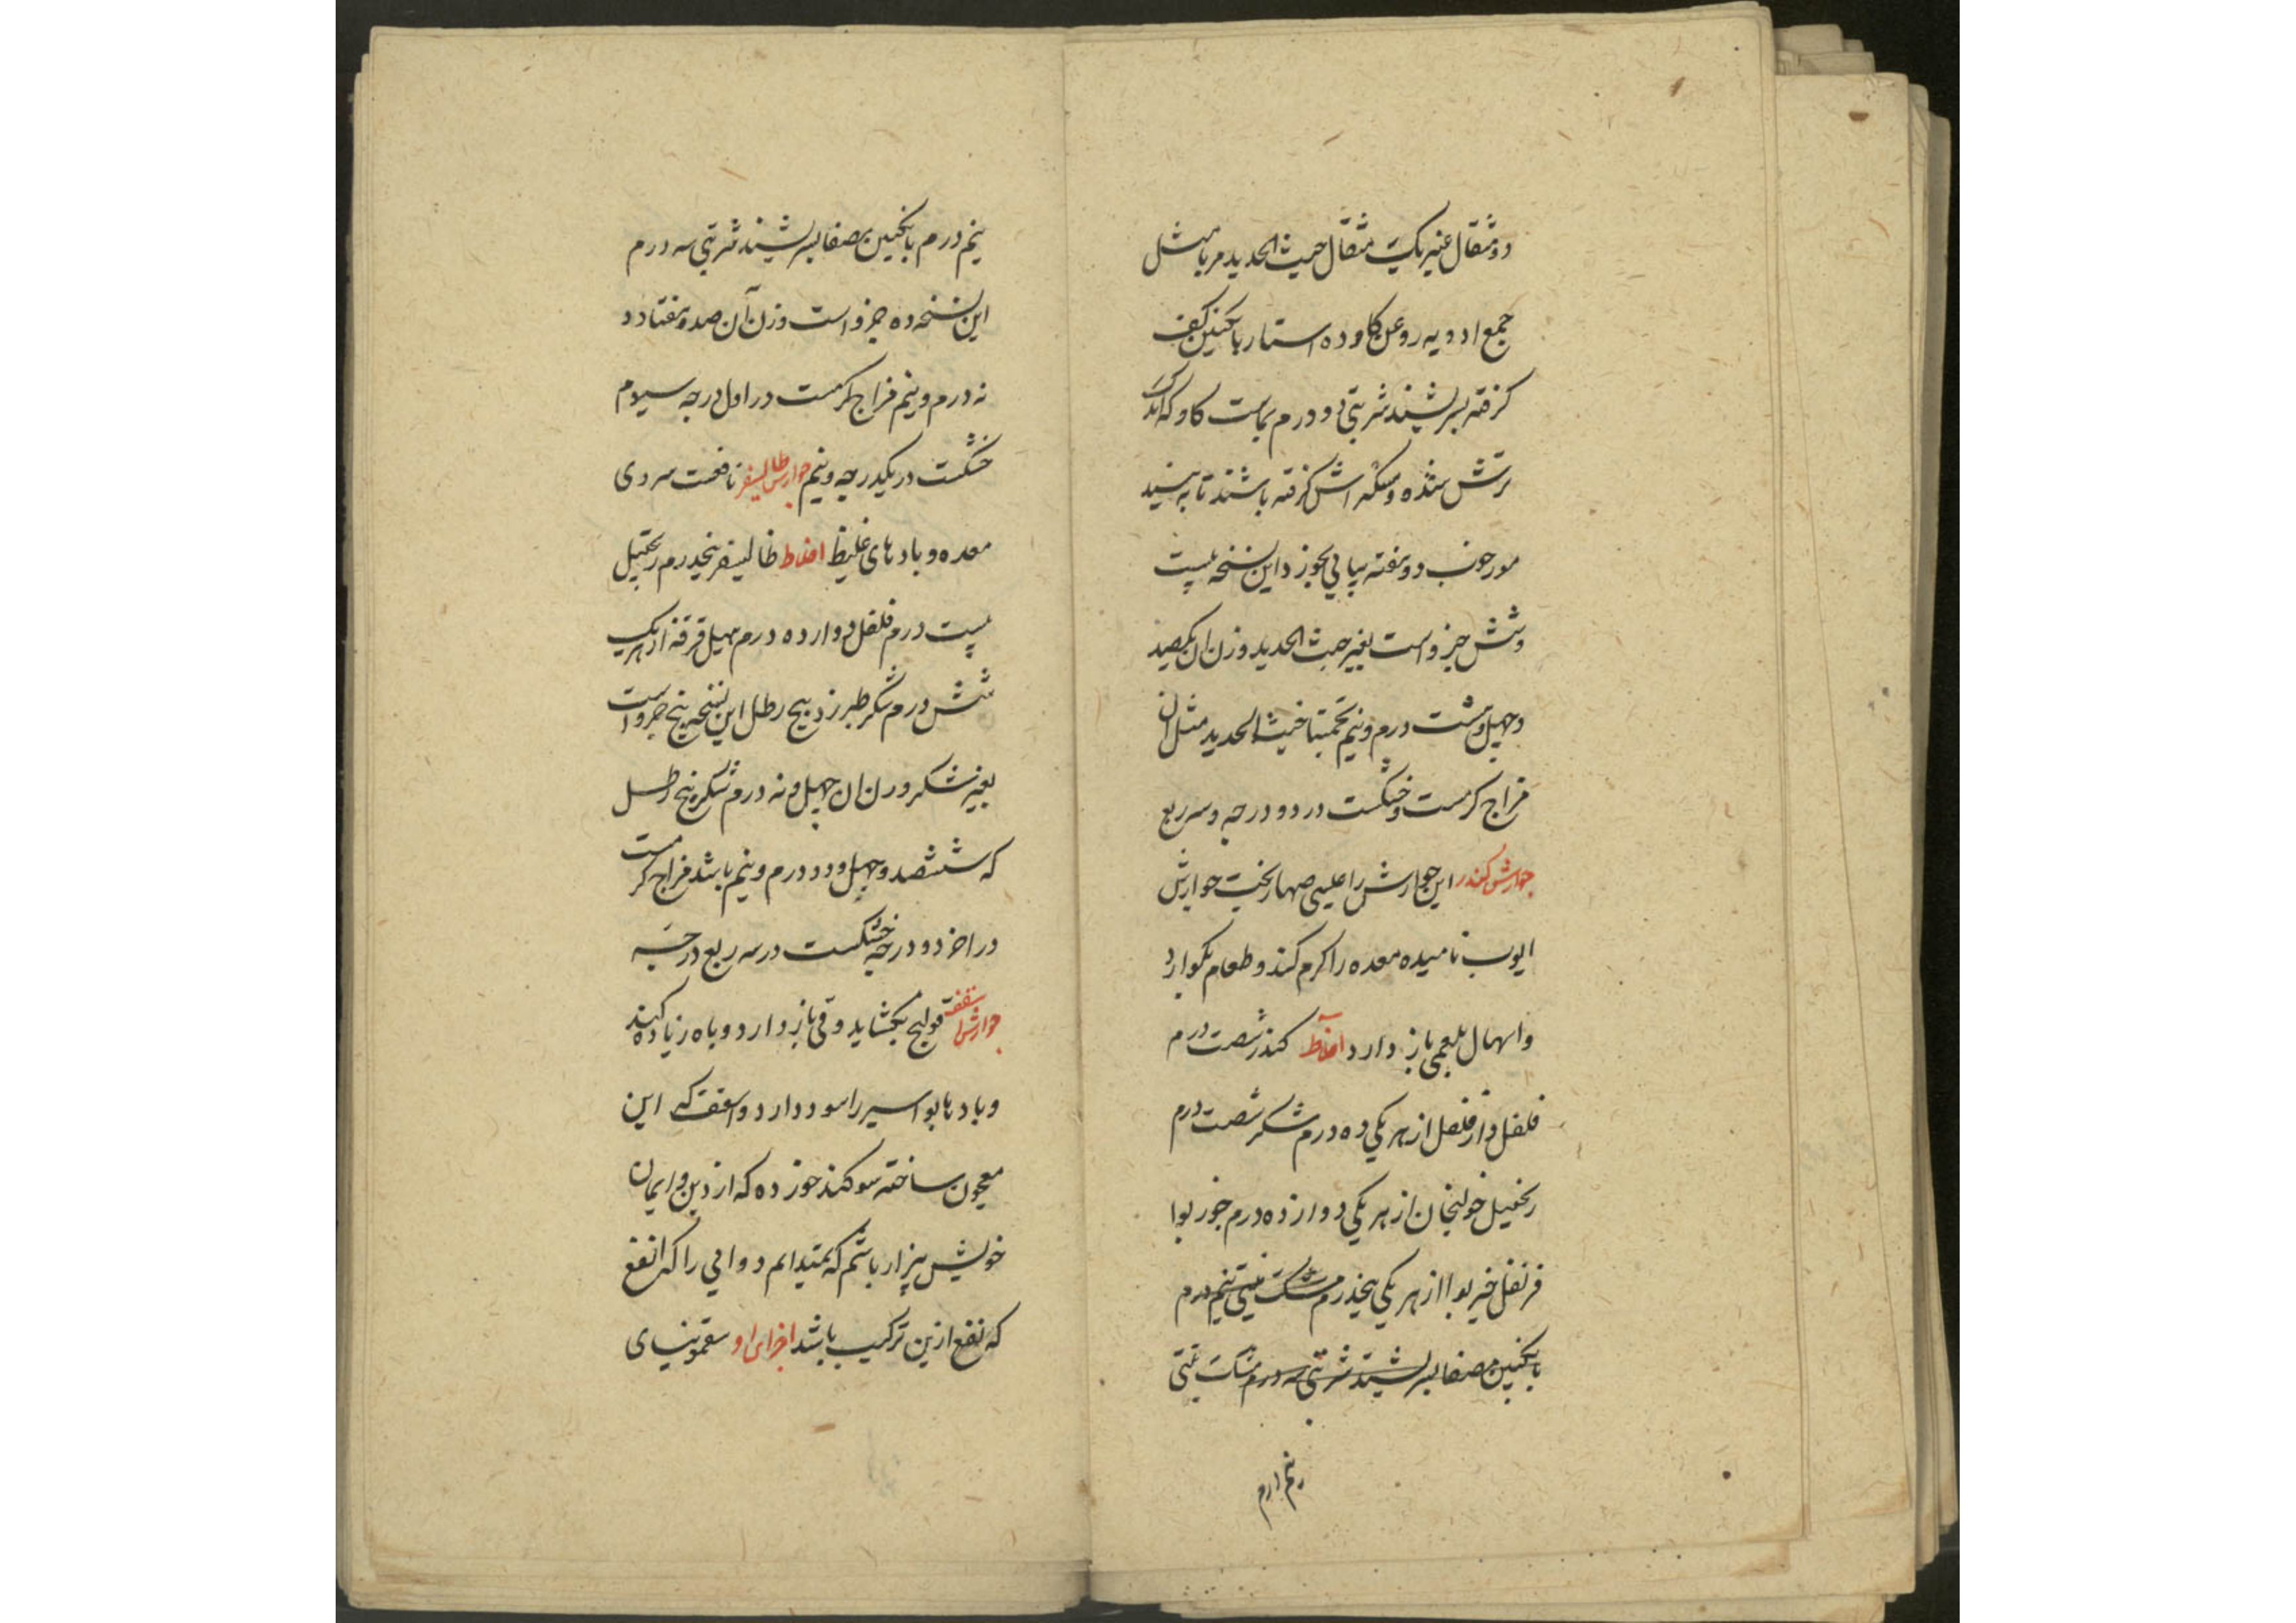 دو مثقال عنبر یک مثقال خبث الحدید مربا مثل
جمع ادویه روغن کاو ده استار بانکبین کف
کرفته بسریشند شربتی دو درم بماست کاو که اندک
ترش شده و مسکه اش کرفته باشند تا به
دو هفته پیاپی بخورد این نسخه بیست
و شش جزو است بغیر خبث الحدید وزن ان یکصد
و چهل و هشت درم و نیم تخمینا خبث الحدید مثل ان
مزاج کرمست و خشکست در دو درجه و سه ربع
جوارش کندر این جوارش را عیسی صهاربخت جوارش
ایوب نامیده معده را کرم کند و طعام بکوارد
و اسهال بلغمی باز دارد اخلاط کندر شصت درم
فلفل دارفلفل از هر یکی ده درم شکر شصت درم
زنجبیل خولنجان از هر یکی دوازده درم جوز بوا
قرنفل خیربوا از هر یکی پنجدرم مشک تبتی نیم درم
بانکبین مصفا بسریشند شربتی سه درم مشک تبتی
نیم درم
نیم درم بانکبین مصفا بسریشند شربتی سه درم
این نسخه ده جزو است وزن آن صد و هفتاد و
نه درم و نیم مزاج کرمست در اول درجه سیوم
خشکست در یکدرجه و نیم جوارش طالیسفر نافعست سردی
معده و بادهای غلیظ اخلاط طالیسفر پنجدرم زنجبیل
بیست درم فلفل دوازده درم هیل قرفه از هر یک
شش درم شکر طبرزد پنج رطل این نسخه پنج جزو است
بغیر شکر وزن ان چهل و نه درم شکر پنج رطل
که ششصد و چهل و دو درم و نیم باشد مزاج کرمست
در اخر دو درجه خشکست در سه ربع درجه
جوارش سقفقه قولنج بکشاید و قی باز دارد و باه زیاده کند
و بادها بواسیر را سود دارد و اسقف که این
معجون ساخته سوکند خورده که از دین و ایمان
خویش بیزار باشم که نمیدانم دوایی را که انفع
که نفع ازین ترکیب باشد اجزای او سقمونیای